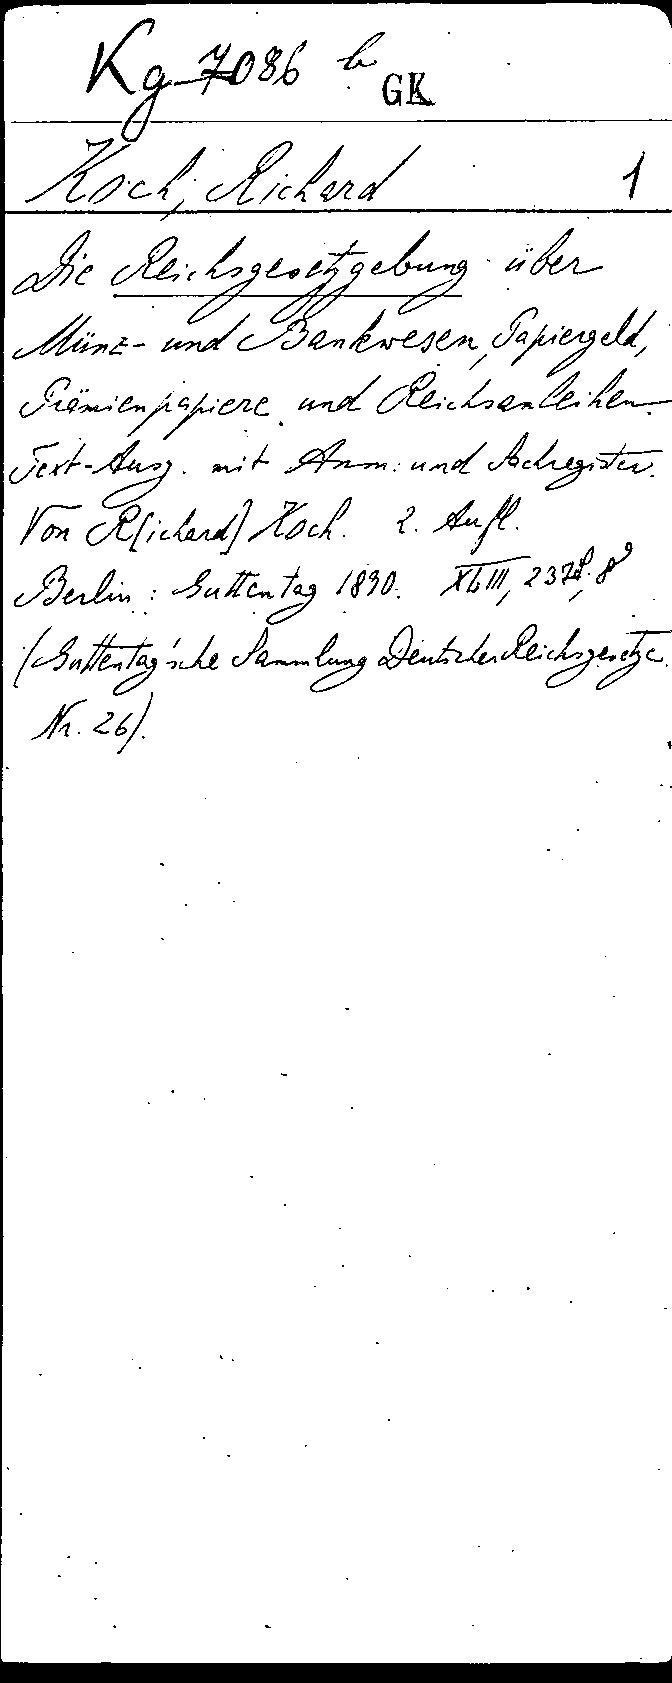 Kg 7086 b GK
Koch, Richard 1
Die Reichsgesetzgebung über
Münz- und Bankwesen, Papiergeld,
Prämienpapiere und Reichsanleihen.
Text-Ausg. mit Anm. und Sachregister.
Von R[ichard] Koch. 2. Aufl.
Berlin: Guttentag 1890. XLIII, 237 S. 8°
(Guttentag'sche Sammlung Deutscher Reichsgesetze
Nr. 26).